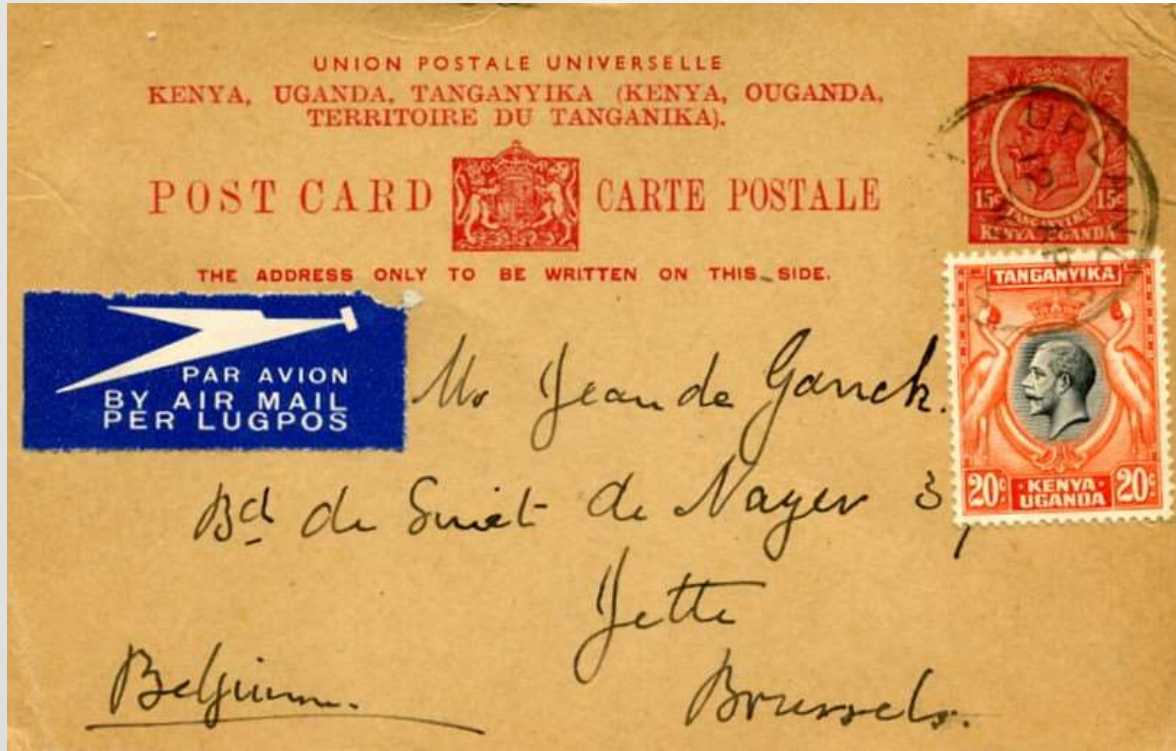 UNION POSTALE UNIVERSELLE
KENYA, UGANDA, TANGANYIKA (KENYA, OUGANDA,
TERRITOIRE DU TANGANIKA).
POST CARD CARTE POSTALE
THE ADDRESS ONLY TO BE WRITTEN ON THIS SIDE.
15c 15c
TANGANYIKA
KENYA UGANDA
UPLANDS
TANGANYIKA
20c KENYA 20c
UGANDA
PAR AVION
BY AIR MAIL
PER LUGPOS
Mr Jean de Ganck.
Bd de Smet de Nayer 3
Jette
Brussels.
Belgium.